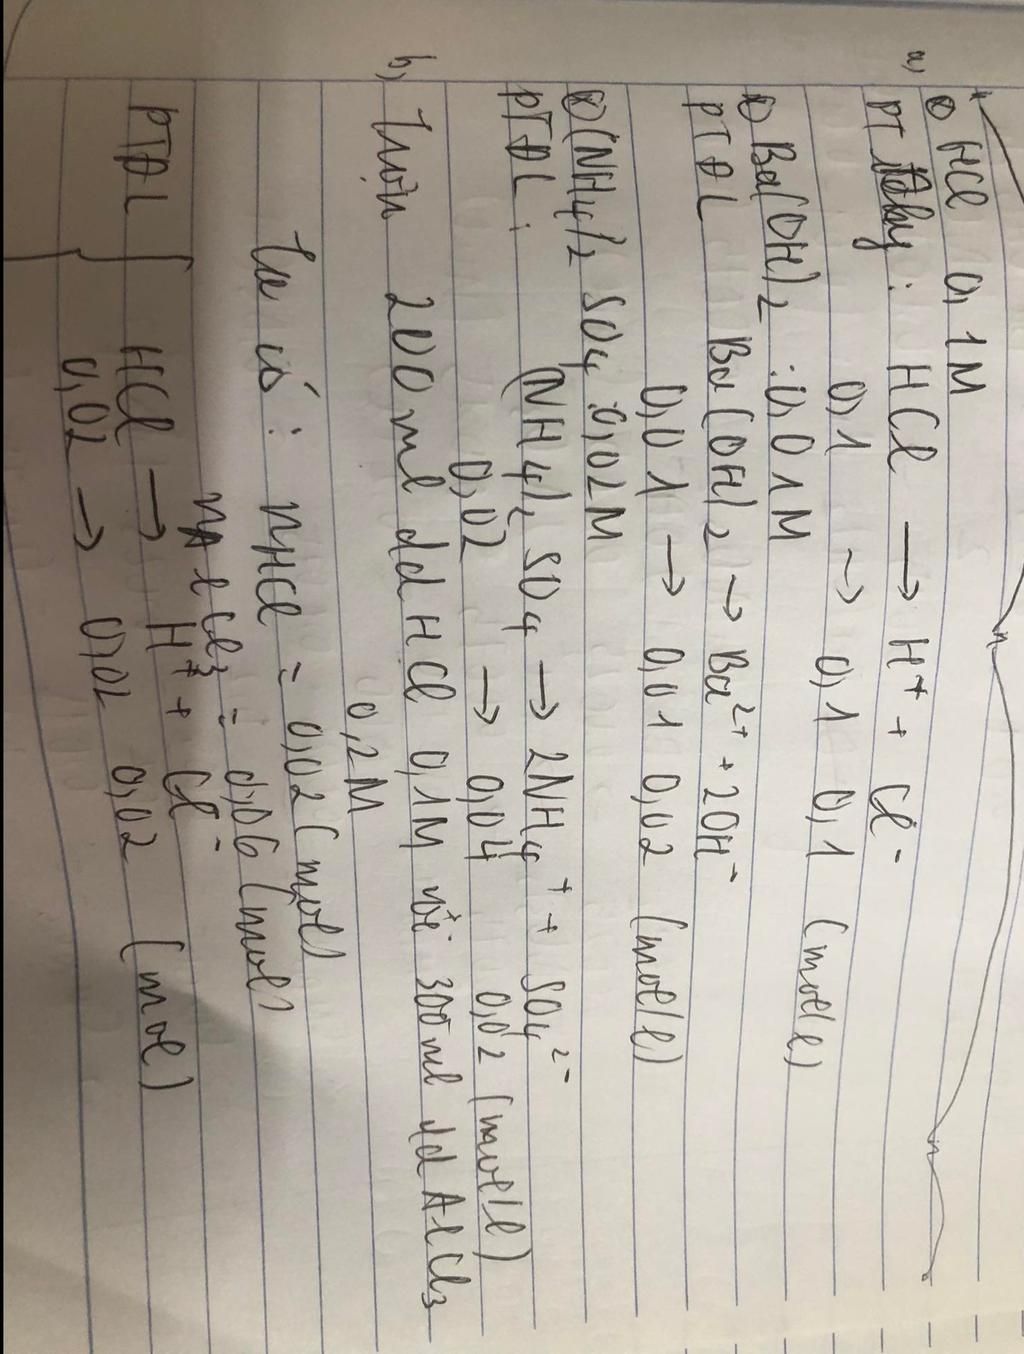 a,
HCl 0,1M
PT : HCl → H⁺ + Cl⁻
0,1 → 0,1 0,1 (mol/l)
Ba(OH)₂ : 0,01M
PTĐL Ba(OH)₂ → Ba²⁺ + 2OH⁻
0,01 → 0,01 0,02 (mol/l)
(NH₄)₂SO₄ : 0,02M
PTĐL : (NH₄)₂SO₄ → 2NH₄⁺ + SO₄²⁻
0,02 → 0,04 0,02 (mol/l)
b, Trộn 200ml dd HCl 0,1M với 300ml dd AlCl₃
0,2M
Ta có : nHCl = 0,02 (mol)
nAlCl₃ = 0,06 (mol)
PTĐL { HCl → H⁺ + Cl⁻
0,02 → 0,02 0,02 (mol)